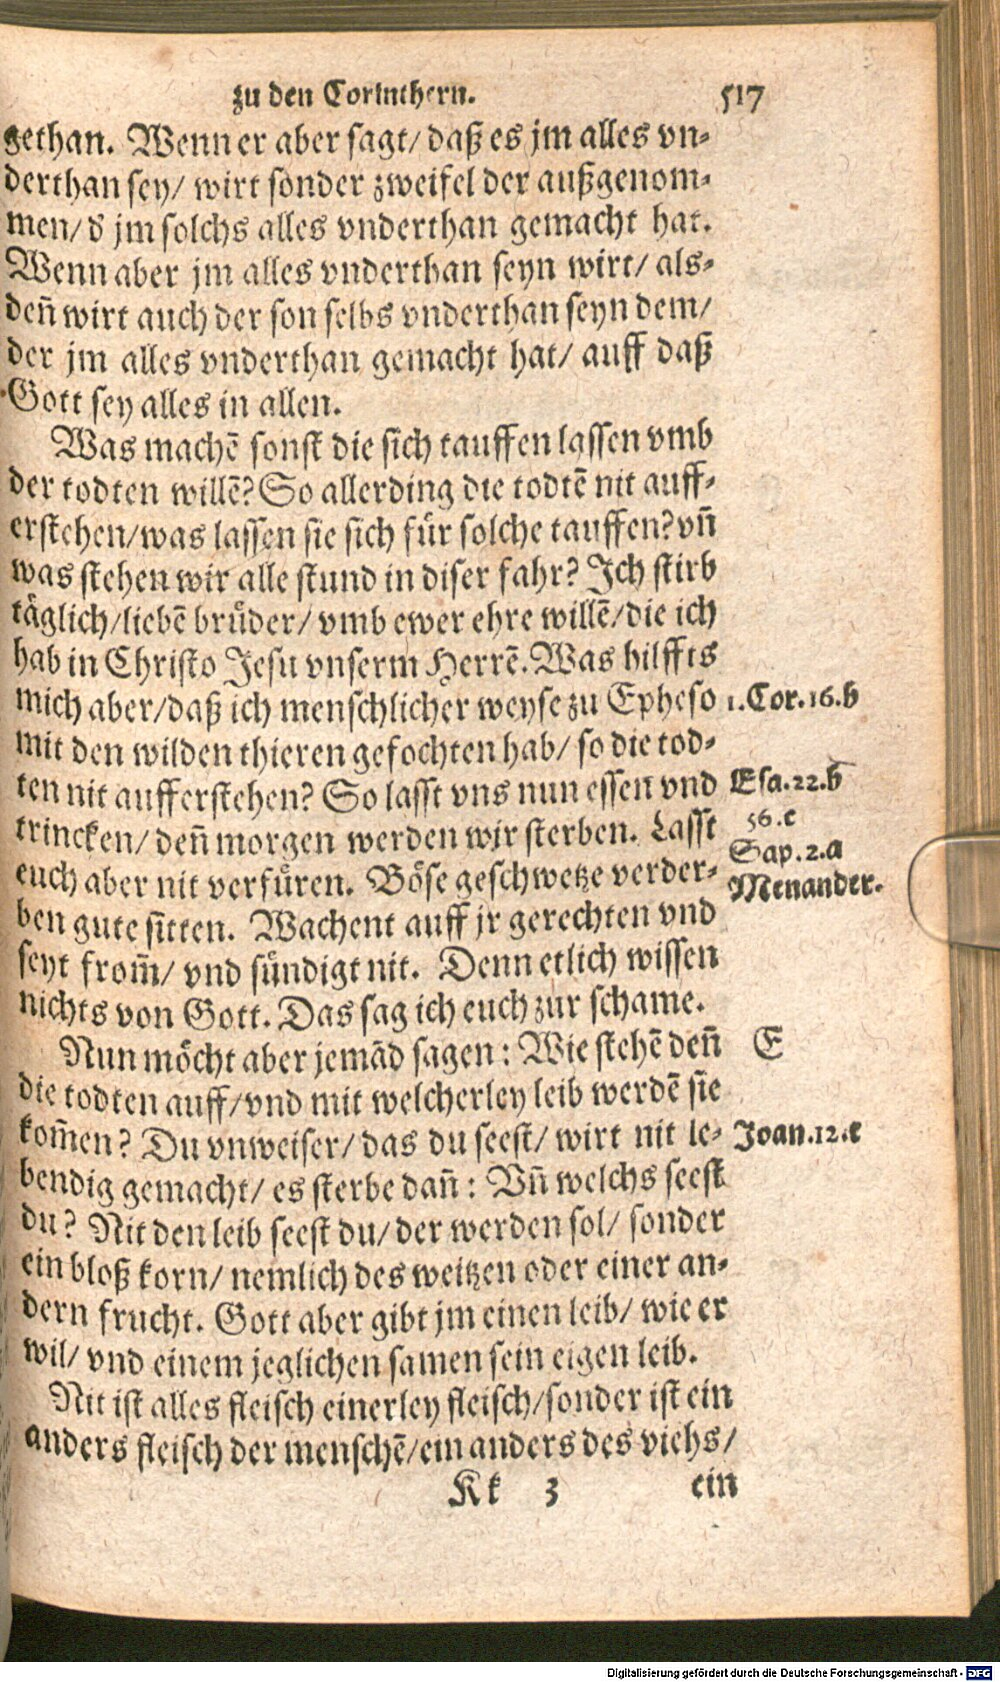 zu den Corinthern. 517
gethan. Wenn er aber sagt/ daß es jm alles vn-
derthan sey/ wirt sonder zweifel der außgenom-
men/ d̕ jm solchs alles vnderthan gemacht hat.
Wenn aber jm alles vnderthan seyn wirt/ als-
deñ wirt auch der son selbs vnderthan seyn dem/
der jm alles vnderthan gemacht hat/ auff daß
Gott sey alles in allen.
Was machẽ sonst die sich tauffen lassen vmb
der todten willẽ? So allerding die todtẽ nit auff-
erstehen/ was lassen sie sich für solche tauffen? vñ
was stehen wir alle stund in diser fahr? Ich stirb
täglich/ liebẽ brůder/ vmb ewer ehre willẽ/ die ich
hab in Christo Jesu vnserm Herrẽ. Was hilffts
mich aber/ daß ich menschlicher weyse zu Epheso 1. Cor. 16. b
mit den wilden thieren gefochten hab/ so die tod-
ten nit aufferstehen? So lasst vns nun essen vnd Esa. 22. b
trincken/ deñ morgen werden wir sterben. Lasst 56. c
euch aber nit verfüren. Böse geschwetze verder- Sap. 2. a
ben gute sitten. Wachent auff jr gerechten vnd Menander.
seyt from̃/ vnd sündigt nit. Denn etlich wissen
nichts von Gott. Das sag ich euch zur schame.
Nun möcht aber jemãd sagen: Wie stehẽ deñ E
die todten auff/ vnd mit welcherley leib werdẽ sie
kom̃en? Du vnweiser/ das du seest/ wirt nit le- Joan. 12. c
bendig gemacht/ es sterbe dañ: Vñ welchs seest
du? Nit den leib seest du/ der werden sol/ sonder
ein bloß korn/ nemlich des weitzen oder einer an-
dern frucht. Gott aber gibt jm einen leib/ wie er
wil/ vnd einem jeglichen samen sein eigen leib.
Nit ist alles fleisch einerley fleisch/ sonder ist ein
anders fleisch der menschẽ/ ein anders des viehs/
Kk 3 ein
Digitalisierung gefördert durch die Deutsche Forschungsgemeinschaft - DFG